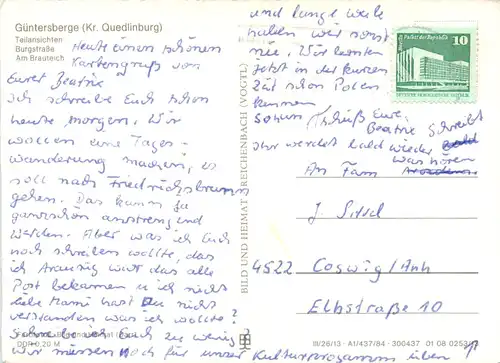 Güntersberge (Kr. Quedlinburg)
Teilansichten
Burgstraße
Am Brauteich
Heute einen schönen
Kartengruß von
Eurer Beatrix
Ich schreibe Euch schon
heute morgen. Wir
wollen eine Tages-
wanderung machen, es
soll nach Friedrichsbrunn
gehen. Das kann ja
ganz schön anstrengend
werden. Aber was ich Euch
noch schreiben wollte, das
ich Ärmste wart das alle
Post bekamen u ich nicht
liebe Mami hast Du nicht
verstanden was ich wollte?
Schreibe ich Euch zu wenig
Wir müssen noch für unser Kulturprogramm üben
und lange weile
haben wir sonst
nie. Wir lernten
jetzt in der kurzen
Zeit schon Polen
kennen
Tschüß Eure
Beatrix Schreibt
Ihr werdet bald wieder
was hören
An Fam
J.
4522 Coswig/Anh
Elbstraße 10
Palast der Republik
10
BILD UND HEIMAT REICHENBACH (VOGTL)
DDR 0,20 M
III/26/13 · A1/437/84 · 300437 01 08 0253